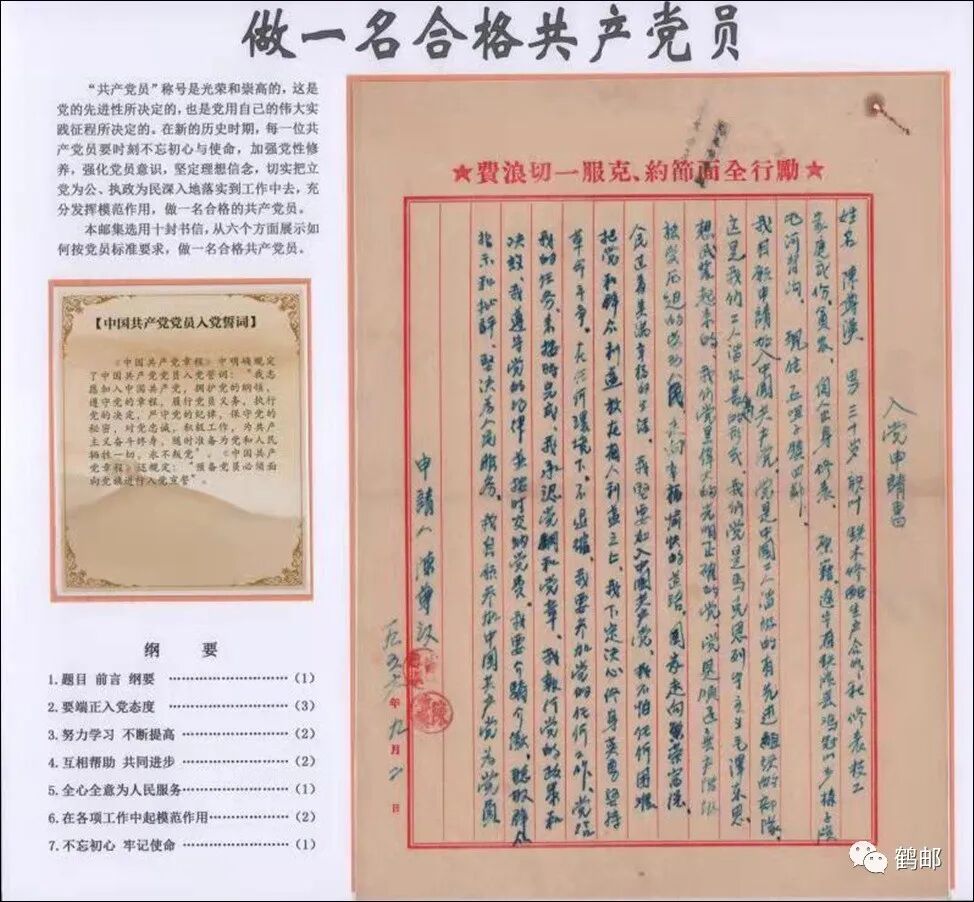 做一名合格共产党员
“共产党员”称号是光荣和崇高的，这是
党的先进性所决定的，也是党用自己的伟大实
践征程所决定的。在新的历史时期，每一位共
产党员要时刻不忘初心与使命，加强党性修
养，强化党员意识，坚定理想信念，切实把立
党为公、执政为民深入地落实到工作中去，充
分发挥模范作用，做一名合格的共产党员。
本邮集选用十封书信，从六个方面展示如
何按党员标准要求，做一名合格共产党员。
【中国共产党党员入党誓词】
《中国共产党章程》中明确规定
了中国共产党党员入党誓词：“我志
愿加入中国共产党，拥护党的纲领，
遵守党的章程，履行党员义务，执行
党的决定，严守党的纪律，保守党的
秘密，对党忠诚，积极工作，为共产
主义奋斗终身，随时准备为党和人民
牺牲一切，永不叛党”。《中国共产
党章程》还规定：“预备党员必须面
向党旗进行入党宣誓”。
纲 要
1.题目 前言 纲要 ……………………（1）
2.要端正入党态度 ……………………（3）
3.努力学习 不断提高 …………………（2）
4.互相帮助 共同进步 …………………（2）
5.全心全意为人民服务…………………（1）
6.在各项工作中起模范作用……………（2）
7.不忘初心 牢记使命 …………………（1）
★勵行全面節約、克服一切浪費★
入党申請書
姓名 陳 男 三十岁 职业 鉄木修配生产合作社 修表技工
家庭成份 貧农 个人出身 修表
現住 五
我自願申請加入中國共产党，党是中國工人階級的有先进組織的部隊，
這是我們工人階級 我們党是馬克思列宁主义毛澤东思
想武装起来的，我們党是偉大的光明正確的党，党是領
民过着美满幸福的生活，我坚要加入中國共产党，我不怕任何困难
把党和群众利益放在個人利益之上，我下定决心終身
革命斗争，在任何環境下，不退縮，我要参加党的任何工作，党給
我的任务，来按時完成，我承認党綱和党章，我執行党的政策和
决议，我遵守党的纪律並按时交納党費，我要 聽取群众
指示和批評，坚决为人民服务，我自願参加中國共产党为党員
申請人 陳
年九月 日
鹤邮